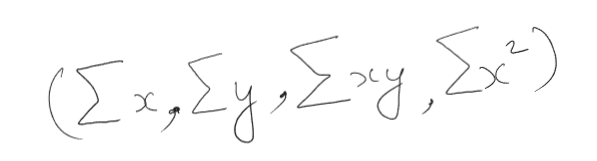 (∑x, ∑y, ∑xy, ∑x²)